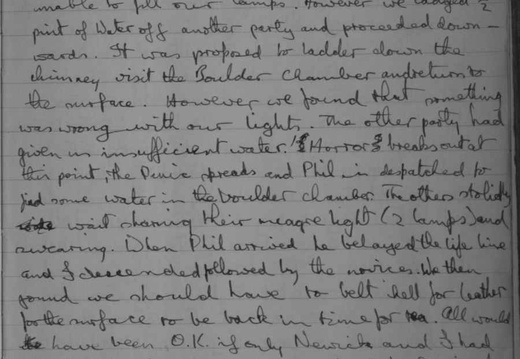 unable to fill our lamps. However we cadged ½
pint of Water off another party and proceeded down-
wards. It was proposed to ladder down the
chimney visit the Boulder Chamber and return to
the surface. However we found that something
was wrong with our lights. The other party had
given us insufficient water! Horror breaks out at
this point, the Panic spreads and Phil is despatched to
find some water in the boulder chamber. The others stolidly
wait sharing their meagre light (2 lamps) and
swearing. When Phil arrived he belayed the life line
and I descended followed by the novices. We then
found we should have to belt hell for leather
for the surface to be back in time for tea. All would
have been O.K. if only Newrick and I had